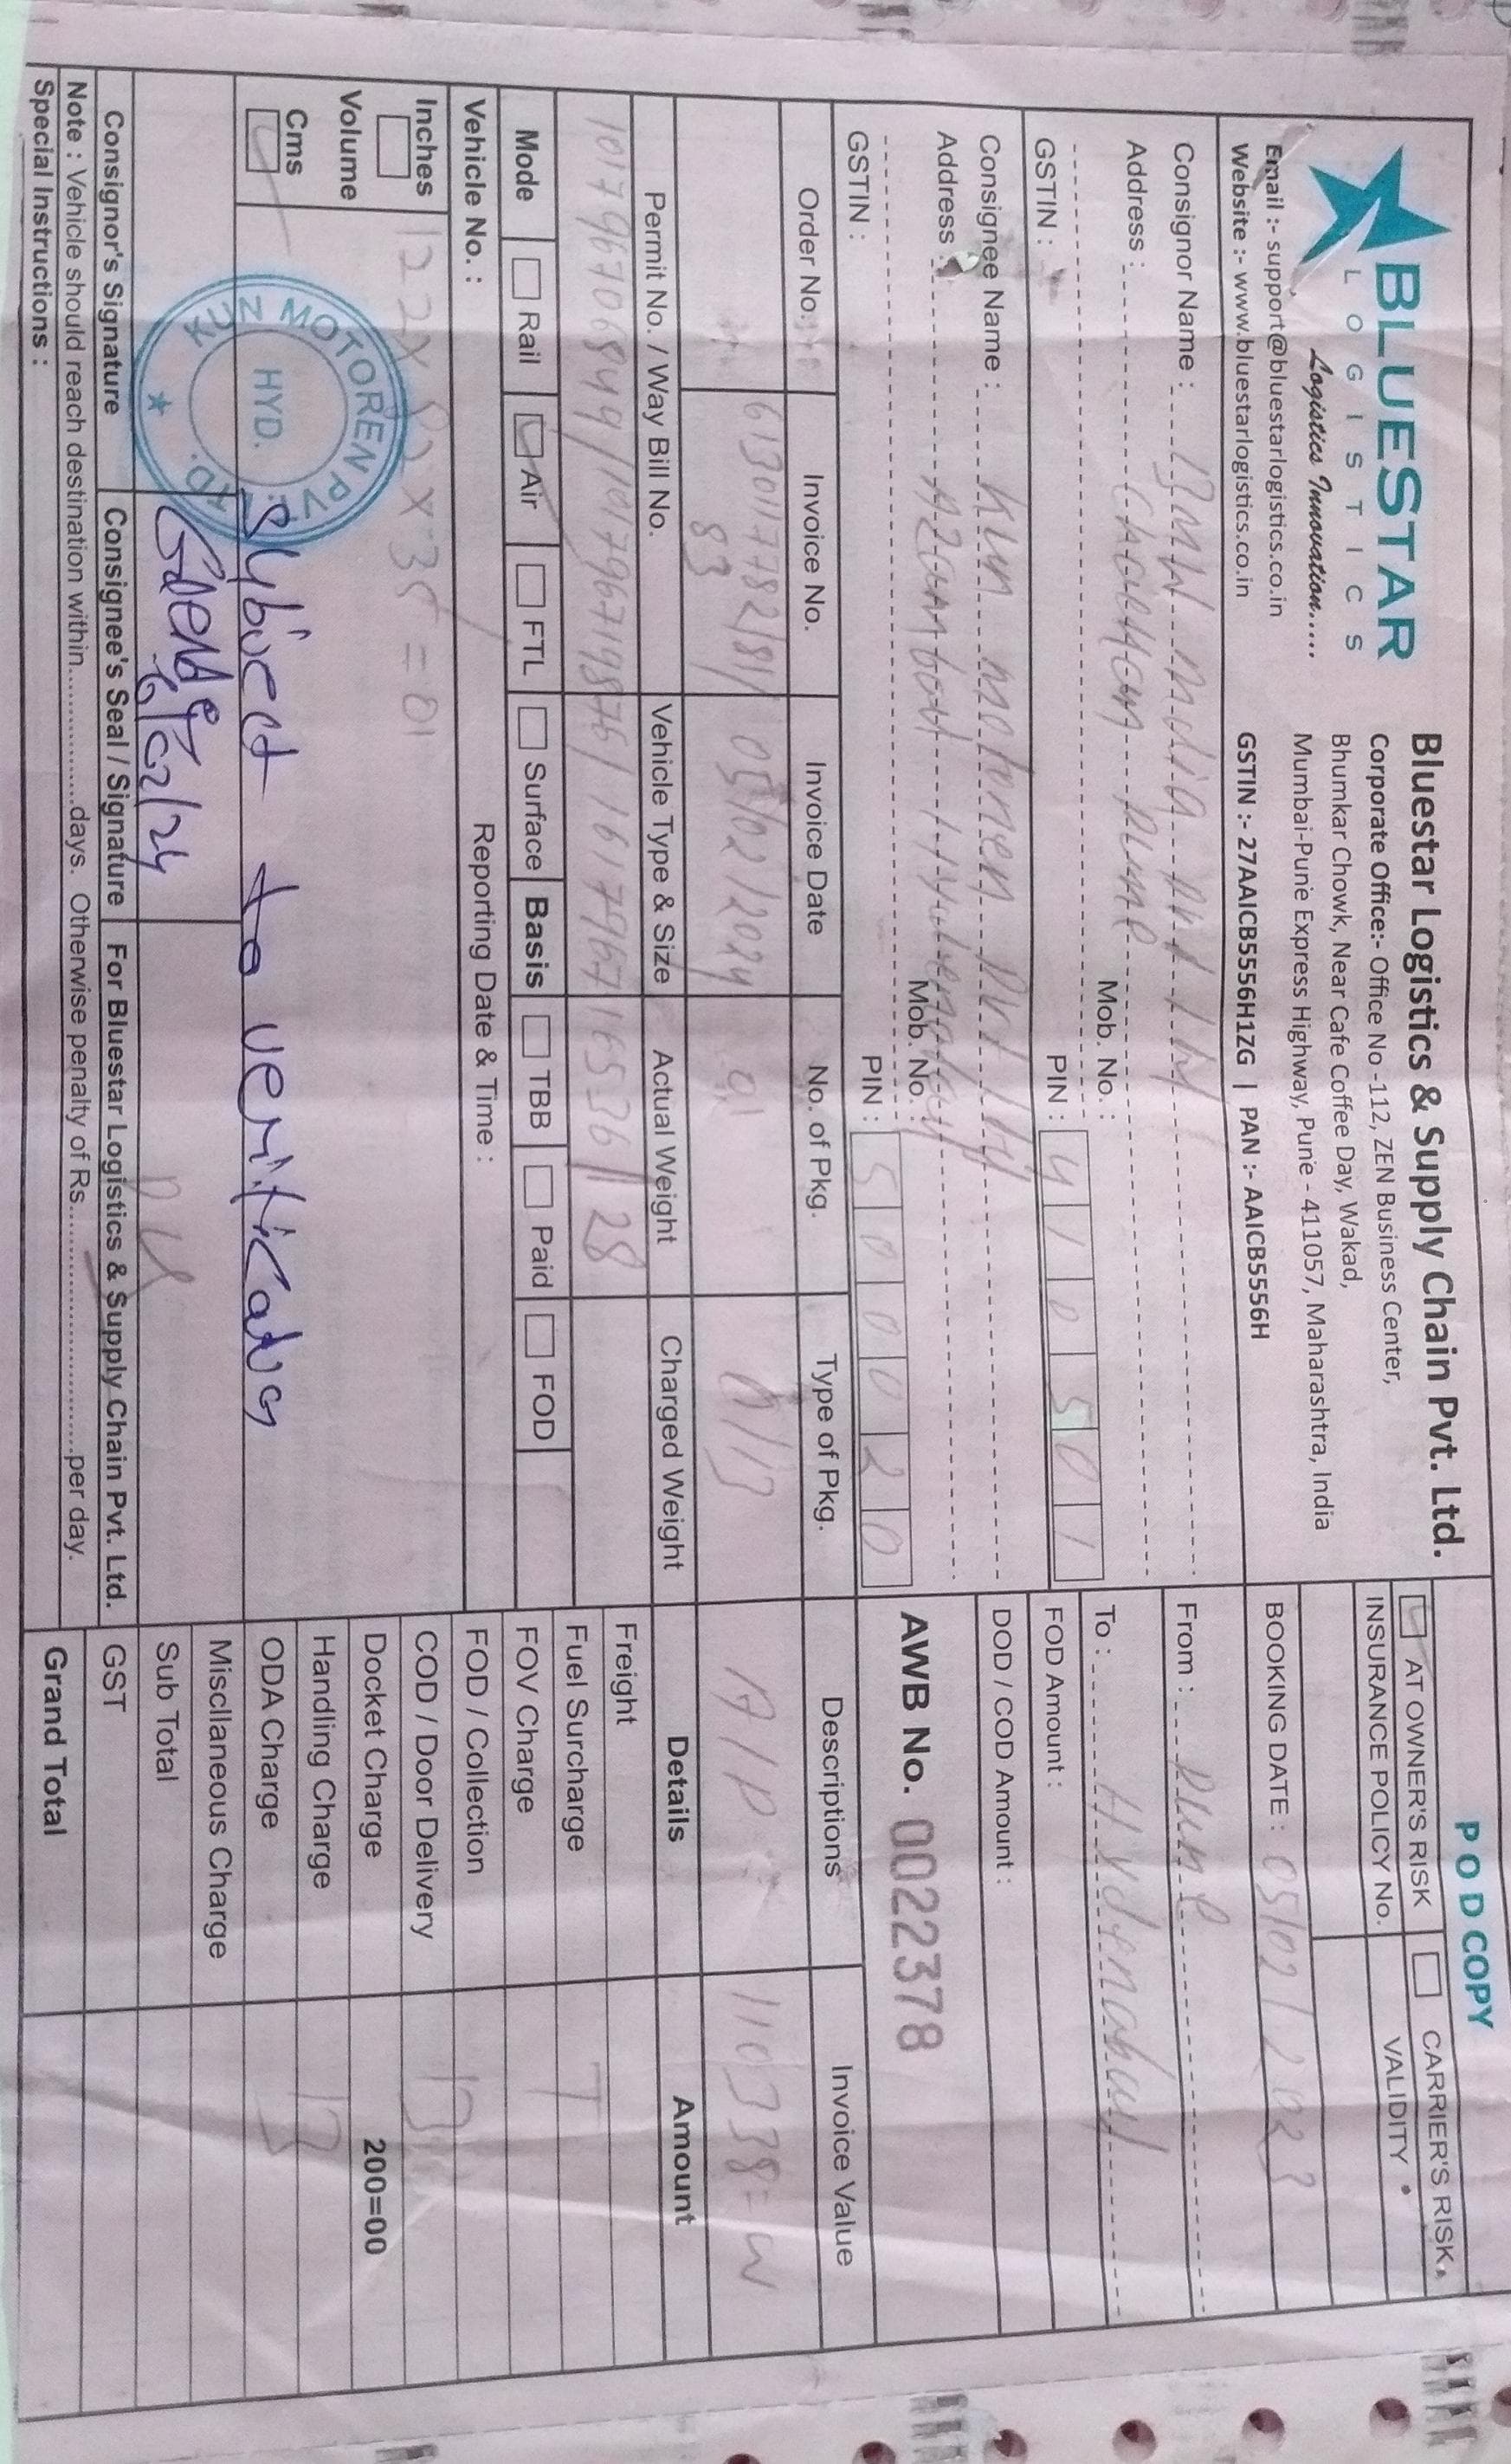 POD COPY
BLUESTAR
LOGISTICS
Logistics Innovation.....
Email :- support@bluestarlogistics.co.in
Website :- www.bluestarlogistics.co.in
Bluestar Logistics & Supply Chain Pvt. Ltd.
Corporate Office:- Office No -112, ZEN Business Center,
Bhumkar Chowk, Near Cafe Coffee Day, Wakad,
Mumbai-Pune Express Highway, Pune - 411057, Maharashtra, India
GSTIN :- 27AAICB5556H1ZG | PAN :- AAICB5556H
AT OWNER'S RISK CARRIER'S RISK
INSURANCE POLICY No. VALIDITY
BOOKING DATE : 05/02/2023
Consignor Name : BMW India pvt ltd
Address : Chackan pune
Mob. No. :
GSTIN : PIN : 410501
From : pune
To : Hyderabad
FOD Amount :
DOD / COD Amount :
Consignee Name : Kun motoren pvt ltd
Address : Hyderabad
Mob. No. :
GSTIN : PIN : 500020
AWB No. 0022378
Order No. Invoice No. Invoice Date No. of Pkg. Type of Pkg. Descriptions Invoice Value
6130117782/81/ 05/02/2024 01 A/P 110338=
83
Permit No. / Way Bill No. Vehicle Type & Size Actual Weight Charged Weight
101796706849/101796719876/161796716536/ 28
Mode Rail Air FTL Surface Basis TBB Paid FOD
Vehicle No. : Reporting Date & Time :
Inches
Volume
Cms
122 x 82 x 35 = 01
KUN MOTOREN PVT. LTD.
HYD.
Subject to verification
6/02/24
Consignor's Signature Consignee's Seal / Signature For Bluestar Logistics & Supply Chain Pvt. Ltd.
Note : Vehicle should reach destination within.................days. Otherwise penalty of Rs...............................per day.
Special Instructions :
Details Amount
Freight
Fuel Surcharge T
FOV Charge
FOD / Collection
COD / Door Delivery
Docket Charge 200=00
Handling Charge
ODA Charge
Miscllaneous Charge
Sub Total
GST
Grand Total